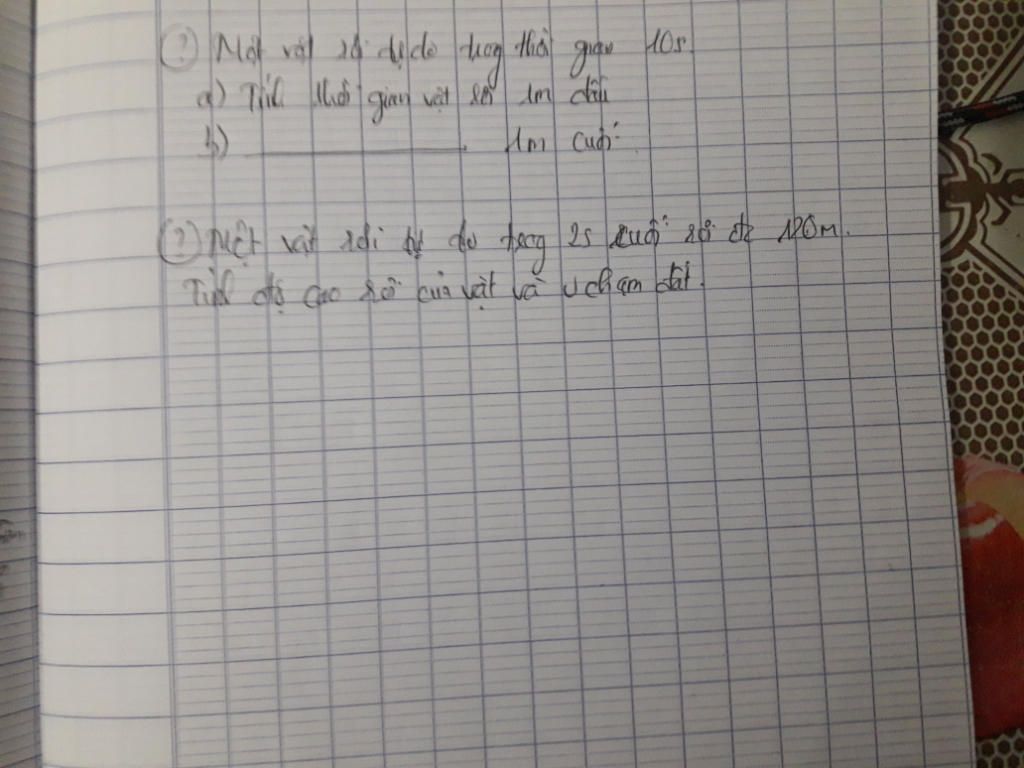 ① Một vật rơi tự do trong thời gian 10s
a) Tính thời gian vật rơi 1m đầu
b) ____________ 1m cuối
② Một vật rơi tự do trong 2s cuối rơi đc 120m.
Tính độ cao rơi của vật và v chạm đất.